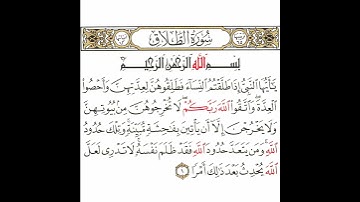 سُورَةُ الطَّلَاقِ
بِسْمِ اللَّهِ الرَّحْمَٰنِ الرَّحِيمِ
يَٰٓأَيُّهَا ٱلنَّبِىُّ إِذَا طَلَّقْتُمُ ٱلنِّسَآءَ فَطَلِّقُوهُنَّ لِعِدَّتِهِنَّ وَأَحْصُوا۟
ٱلْعِدَّةَ وَٱتَّقُوا۟ ٱللَّهَ رَبَّكُمْ لَا تُخْرِجُوهُنَّ مِنۢ بُيُوتِهِنَّ
وَلَا يَخْرُجْنَ إِلَّآ أَن يَأْتِينَ بِفَٰحِشَةٍ مُّبَيِّنَةٍ وَتِلْكَ حُدُودُ
ٱللَّهِ وَمَن يَتَعَدَّ حُدُودَ ٱللَّهِ فَقَدْ ظَلَمَ نَفْسَهُۥ لَا تَدْرِى لَعَلَّ
ٱللَّهَ يُحْدِثُ بَعْدَ ذَٰلِكَ أَمْرًا ١